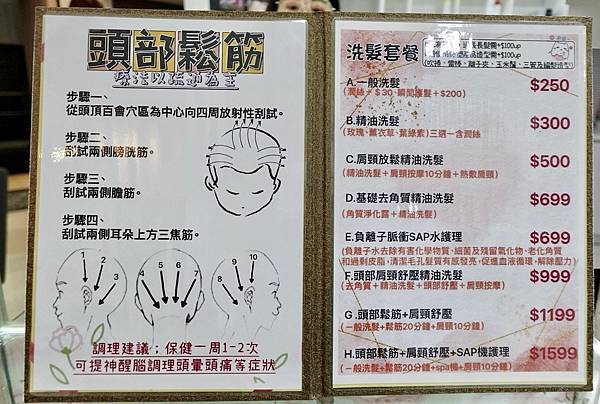 頭部鬆筋
深活以疏通為主
步驟一、
從頭頂百會穴區為中心向四周放射性刮試。
步驟二、
刮試兩側膀胱筋。
步驟三、
刮試兩側膽筋。
步驟四、
刮試兩側耳朵上方三焦筋。
1
2
3
4 5 6 7
8
9
10
調理建議；保健一周1-2次
可提神醒腦調理頭暈頭痛等症狀
洗髮套餐
長髮需+$100up
造型需+$100up
(吹捲、電棒、離子夾、玉米鬚、三管及編髮造型)
A.一般洗髮 $250
(潤絲+＄30、瞬間護髮+$200)
B.精油洗髮 $300
(玫瑰、薰衣草、葉綠素)三選一含潤絲
C.肩頸放鬆精油洗髮 $500
(精油洗髮＋肩頸按摩10分鐘＋熱敷肩頸)
D.基礎去角質精油洗髮 $699
(角質淨化露＋精油洗髮)
E.負離子脈衝SAP水護理 $699
(負離子水去除有害化學物質、細菌及殘留氣化物、老化角質
和過剩皮脂，清潔毛孔髮質有感發亮，促進血液循環，解除壓力)
F.頭部肩頸舒壓精油洗髮 $999
(去角質＋精油洗髮＋頭部舒壓＋肩頸按摩)
G.頭部鬆筋+肩頸舒壓 $1199
(一般洗髮+鬆筋20分鐘+肩頸10分鐘)
H.頭部鬆筋+肩頸舒壓+SAP機護理 $1599
(一般洗髮+鬆筋20分鐘+spa機+肩頸10分鐘)